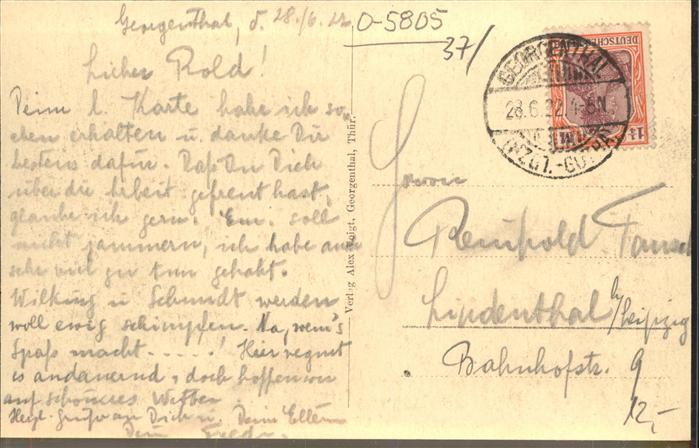 Georgenthal, d. 28./6. 22
O-5805
37/
Lieber Rold!
Deine l. Karte habe ich so-
eben erhalten u. danke Dir
bestens dafür. Daß Du Dich
über die Arbeit gefreut hast,
glaube ich gern. Em. soll
nicht jammern, ich habe auch
sehr viel zu tun gehabt.
Wilking u Schmidt werden
woll ewig schimpfen. Na, wem's
Spaß macht.....! Hier regnet
es andauernd, doch hoffen wir
auf schöneres Wetter.
Herzl. Grüße an Dich u. Deine Eltern
Dein
Verlag Alex Voigt, Georgenthal, Thür.
DEUTSCHES
1½ M
GEORGENTHAL
28.6.22
(BZ GT.-GOTHA)
Herrn
Reinhold
Lindenthal b/Leipzig
Bahnhofstr. 9
12,-